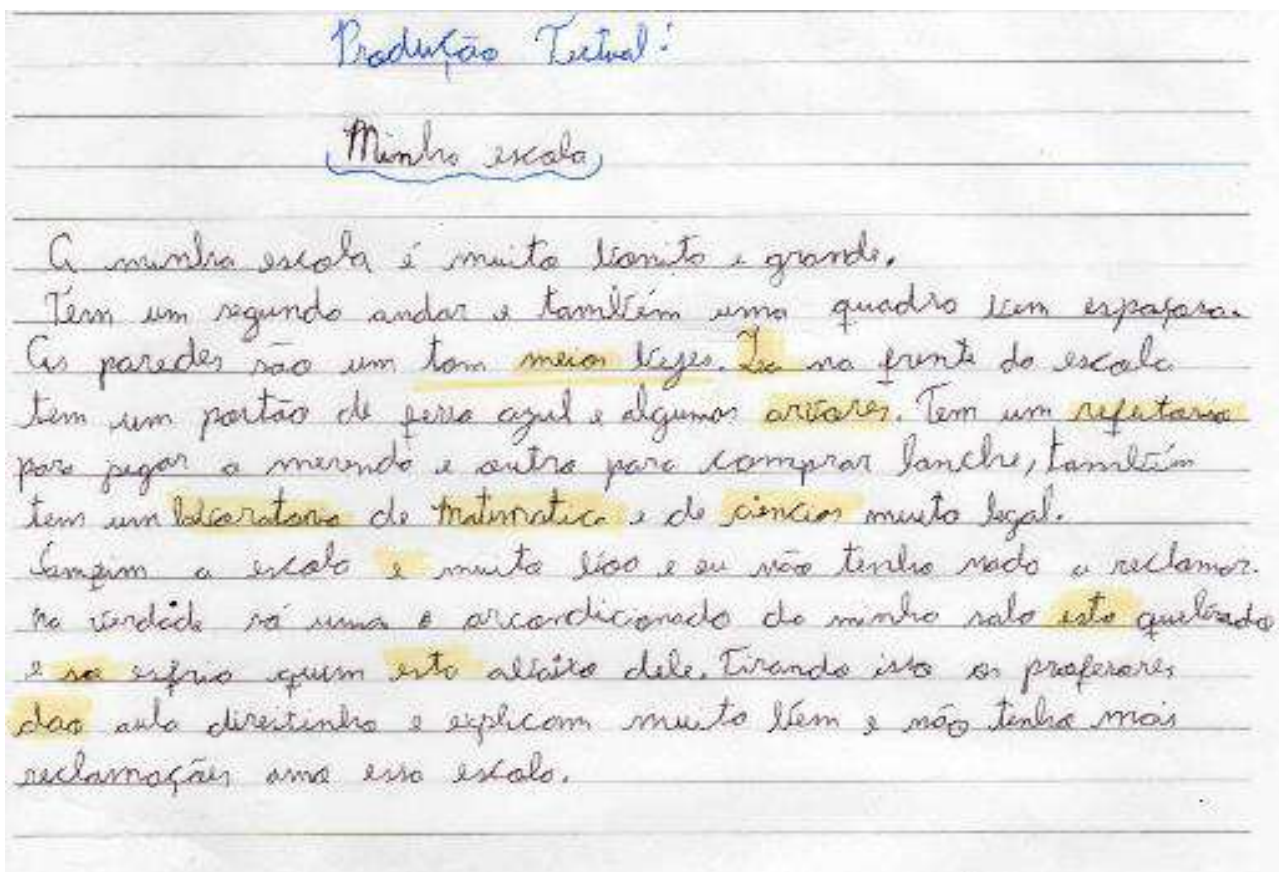 Produção Textual:
Minha escola
A minha escola é muito bonita e grande.
Tem um segundo andar e também uma quadra bem espaçosa.
As paredes são um tom meios bejes. La na frente da escola
tem um portão de ferro azul e algumas arvores. Tem um refeitorio
para pegar a merenda e outro para comprar lanche, também
tem um laboratorio de Matematica e de ciencias muito legal.
a escola e muito boa e eu não tenho nada a reclamar.
na verdade só uma o arcondicionado da minha sala esta quebrado
e so esfria quem esta abaixo dele. Tirando isso os professores
dao aula direitinho e explicam muito bem e não tenho mais
reclamações amo essa escola.